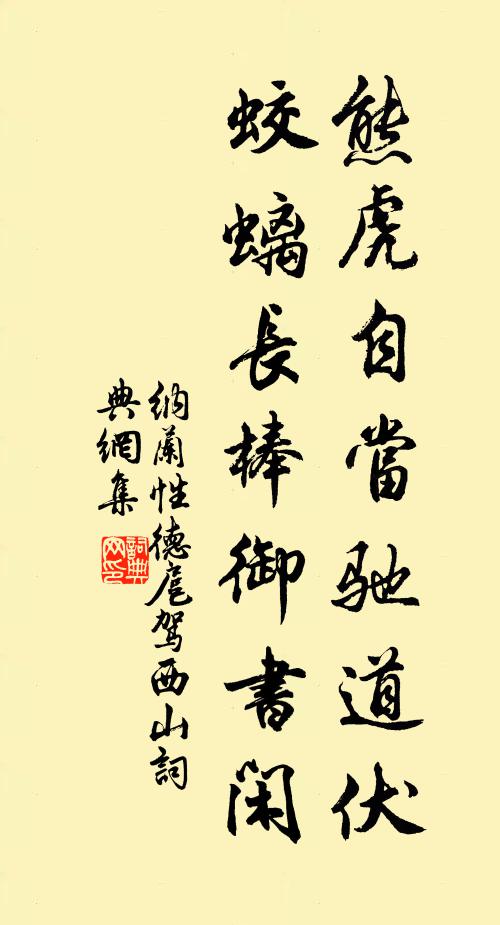 熊虎自當馳道伏
蛟螭長棒御書閑
納蘭性德扈駕西山詞
典網集
詞典
网印